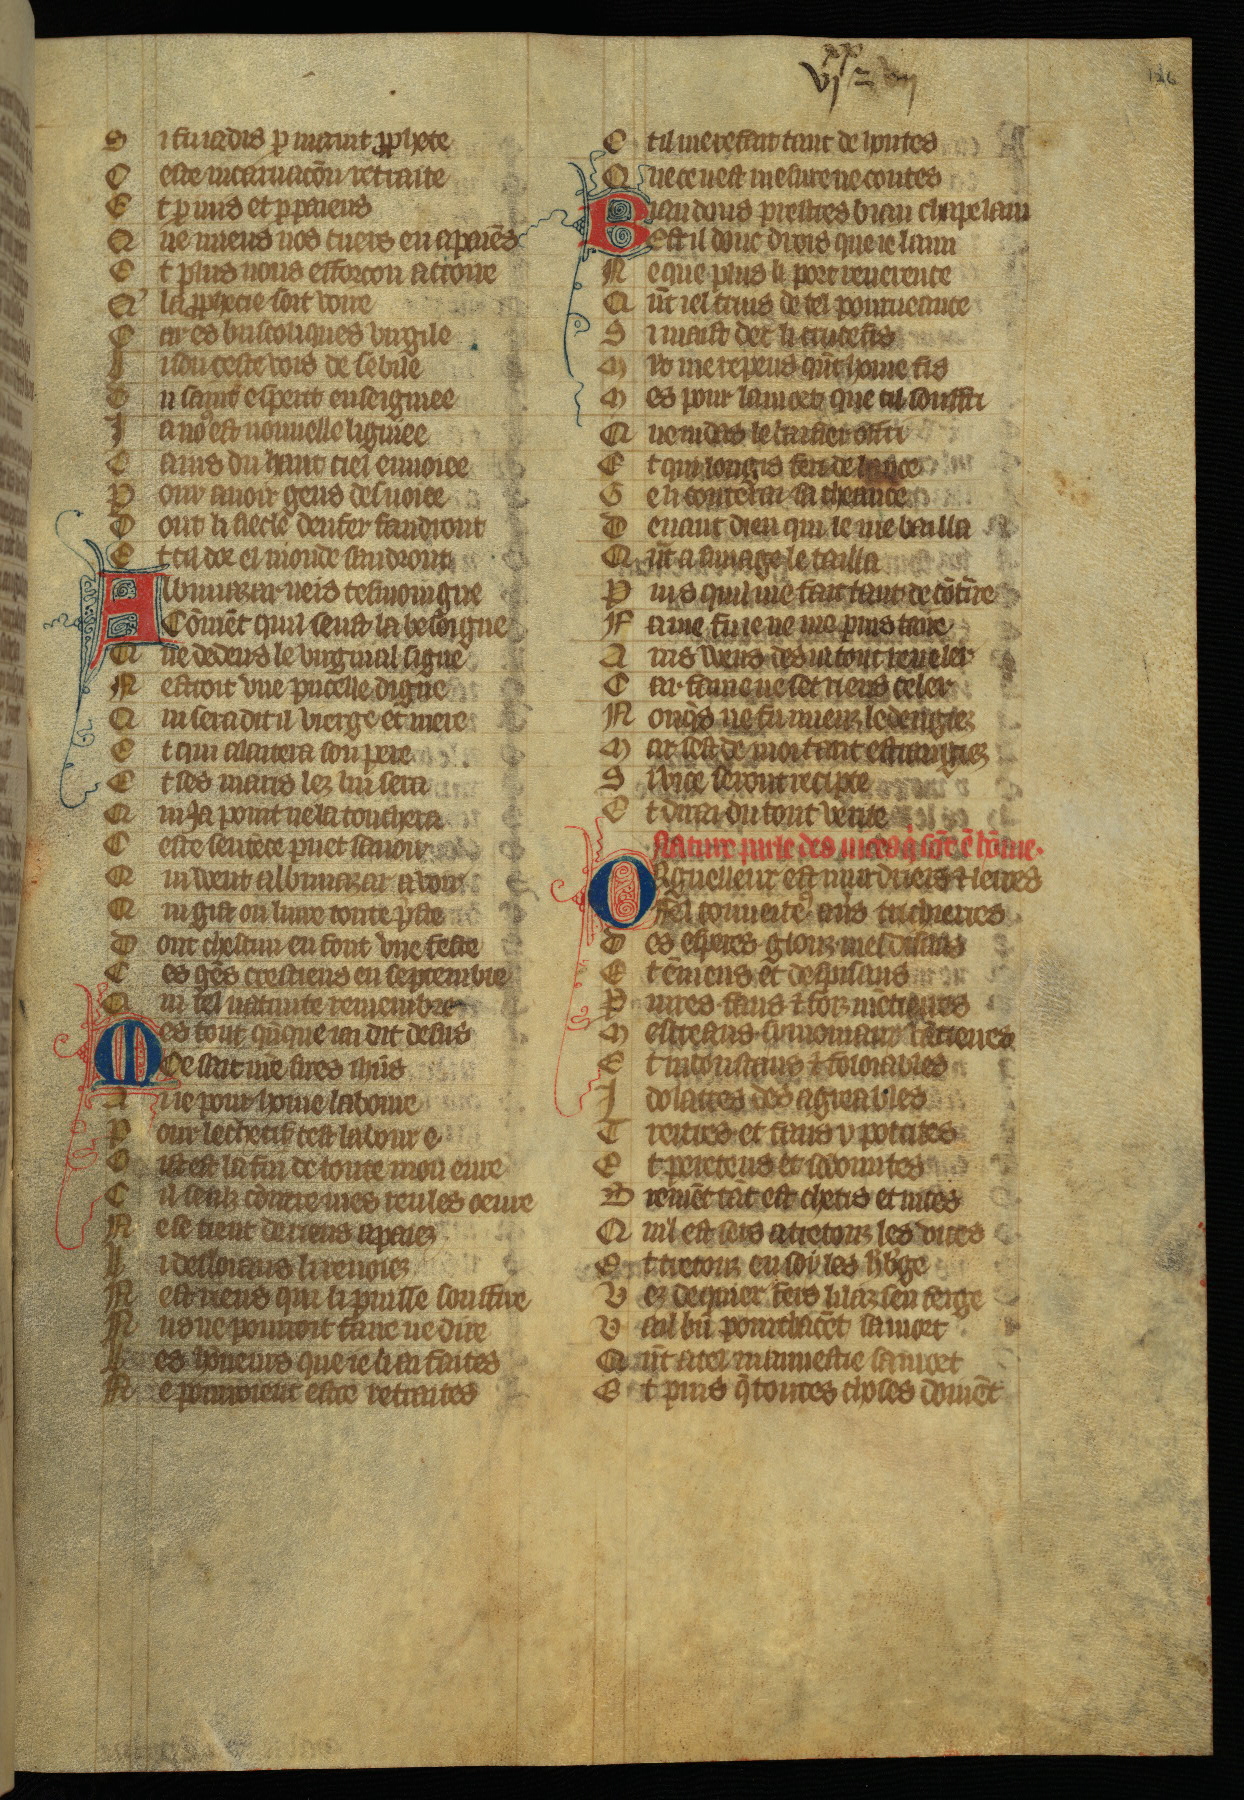 S i fu iadis p maint pphete
C este incarnacõn retraite
E t p iuis et p paiens
Q ue miens nos cuers en apaiẽs
E t plus nous efforcon a croire
Q la pphecie soit voire
C ar es bucoliques virgile
I ist ceste vois de sebile
D u saint esperit enseignee
I a nõ est nouuelle lignee
C a ius du haut ciel enuoiee
P our auoir gens desuoiee
D ont li siecle denfer faudront
E t cil dor el monde saudront
A lbumazar neis tesmoingne
Cõmẽt quil seust la besoigne
Q ue dedens le virginal signe
N estroit vne pucelle digne
Q ui sera dit il vierge et mere
E t qui alaitera son pere
E t ses maris lez lui sera
Q ui ja point ne la touchera
C este sentẽce puet sauoir
Q ui weut albumazar auoir
Q ui gist ou liure toute pste
D ont chascun en font vne feste
C es gẽs crestiens en septembre
Q ui tel natiuite remembre
M es tout qũque iai dit desus
Ce scait nr̃e sires ihũs
A i ie pour home laboure
P our le chetif cest labour e
O ist est la fin de toute mon eure
C il seulz contre mes reules oeuure
N e se tient de riens apaiez
L i desloiaus li renoiez
N est riens qui li puisse souffire
N us ne pourroit faire ne dire
L es honeurs que ie li ai faites
N e pourroient estre retraites
vi xx = vi
126
E t il me refait tant de hontes
Q ue ce nest mesure ne contes
B iau dous prestres biau chapelain
Est il donc drois que ie laim
N e que plus li port reuerence
Q ũt iel truis de tel pourueance
S i maist dex li crucefis
M lt me repens qũt home fis
M es pour la mort que cil souffri
Q ue iudas le baisier offri
E t qui longis feri de lance
G e li conterai sa cheance
D euant dieu qui le me bailla
Q ũt a simage le tailla
P uis quil me fait tant de cõtr̃e
F ame sui ie ne me puis taire
A ins weus des ia tout reueler
C ar fame ne set riens celer
N onqs ne fu mieuz ledengiez
M ar sest de moi tant estrangiez
S i vice seront recipte
E t dirai du tout verite
Nature parle des uices q sõt ẽ lõme.
O rguelleur est murdriers 7 lerres
Fel couuoitex auers tricherres
D es esperes glouz mesdisans
E t ẽmeus et despisans
P arres faus 7 forz mectieres
M escreans enuieus vantierres
E t inconstans 7 foloiables
I dolatres des agreables
T reitres et faus ypocrites
E t pereceus et sodomites
B riemẽt tãt est chetis et nices
Q uil est sers a tretouz les vices
E t tretouz en soi les hberge
V ez de quiex fers li laz senserge
V ail biẽ pourchacẽt sa mort
Q ũt a tel mauuestie samort
E t puis q toutes choses doiuẽt